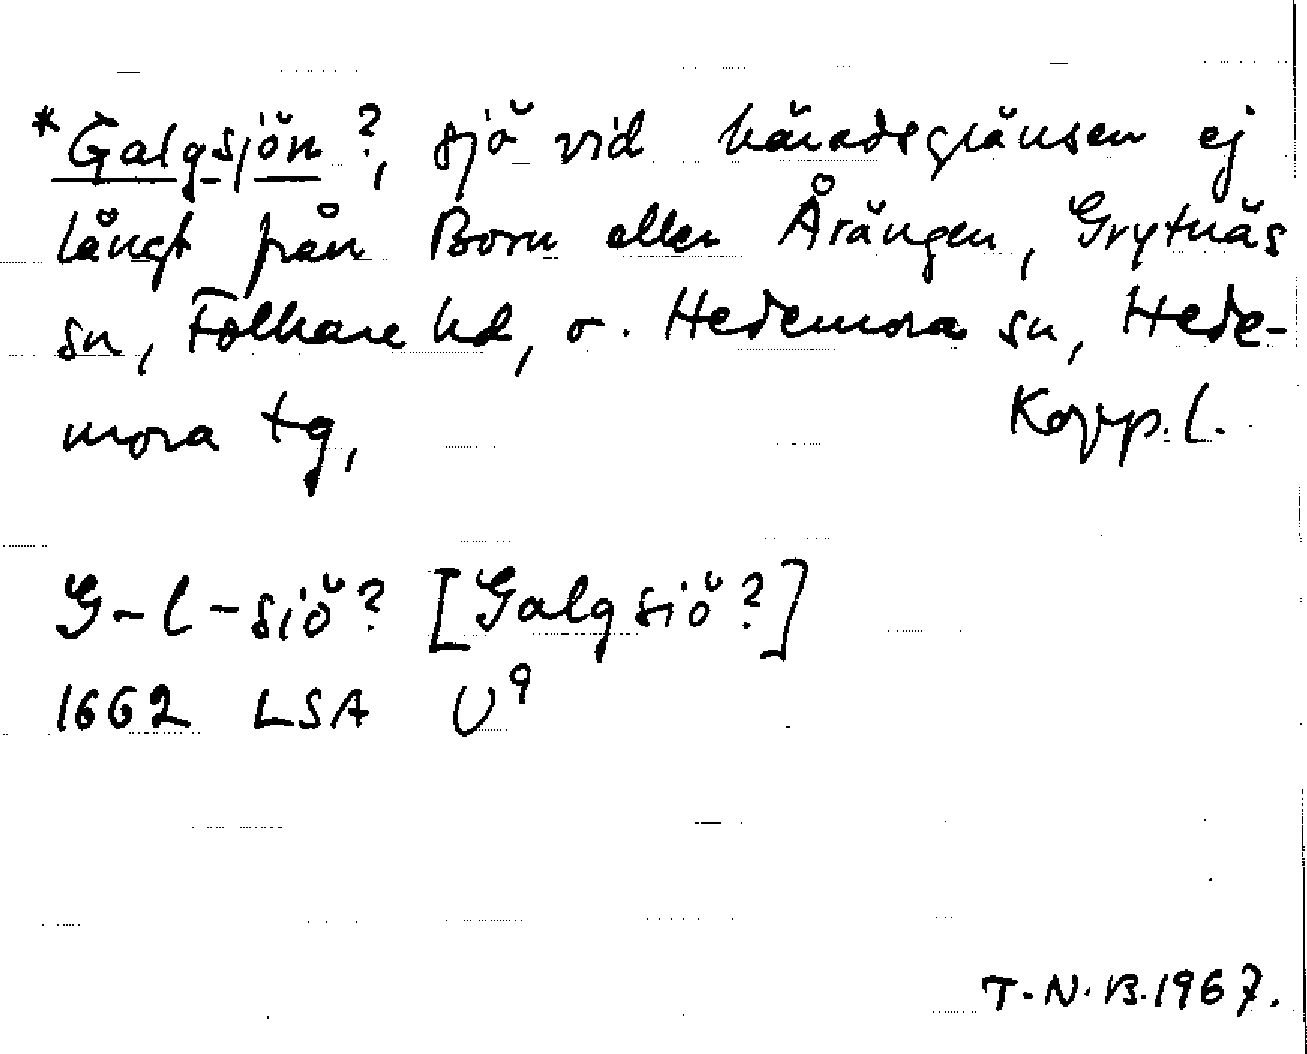 *Galgsjön?, sjö vid häradsgränsen ej
långt från Born eller Årängen, Grytnäs
sn, Folkare hd, o. Hedemora sn, Hede-
mora tg, Kopp. l.
G-l-siö? [Galgsiö?]
1662 LSA U9
T.N.B.1967.